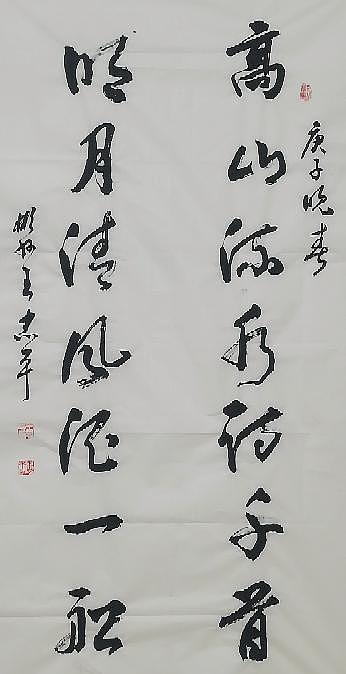 庚子晚春
高山流水诗千首
明月清风酒一船
彬州王志平